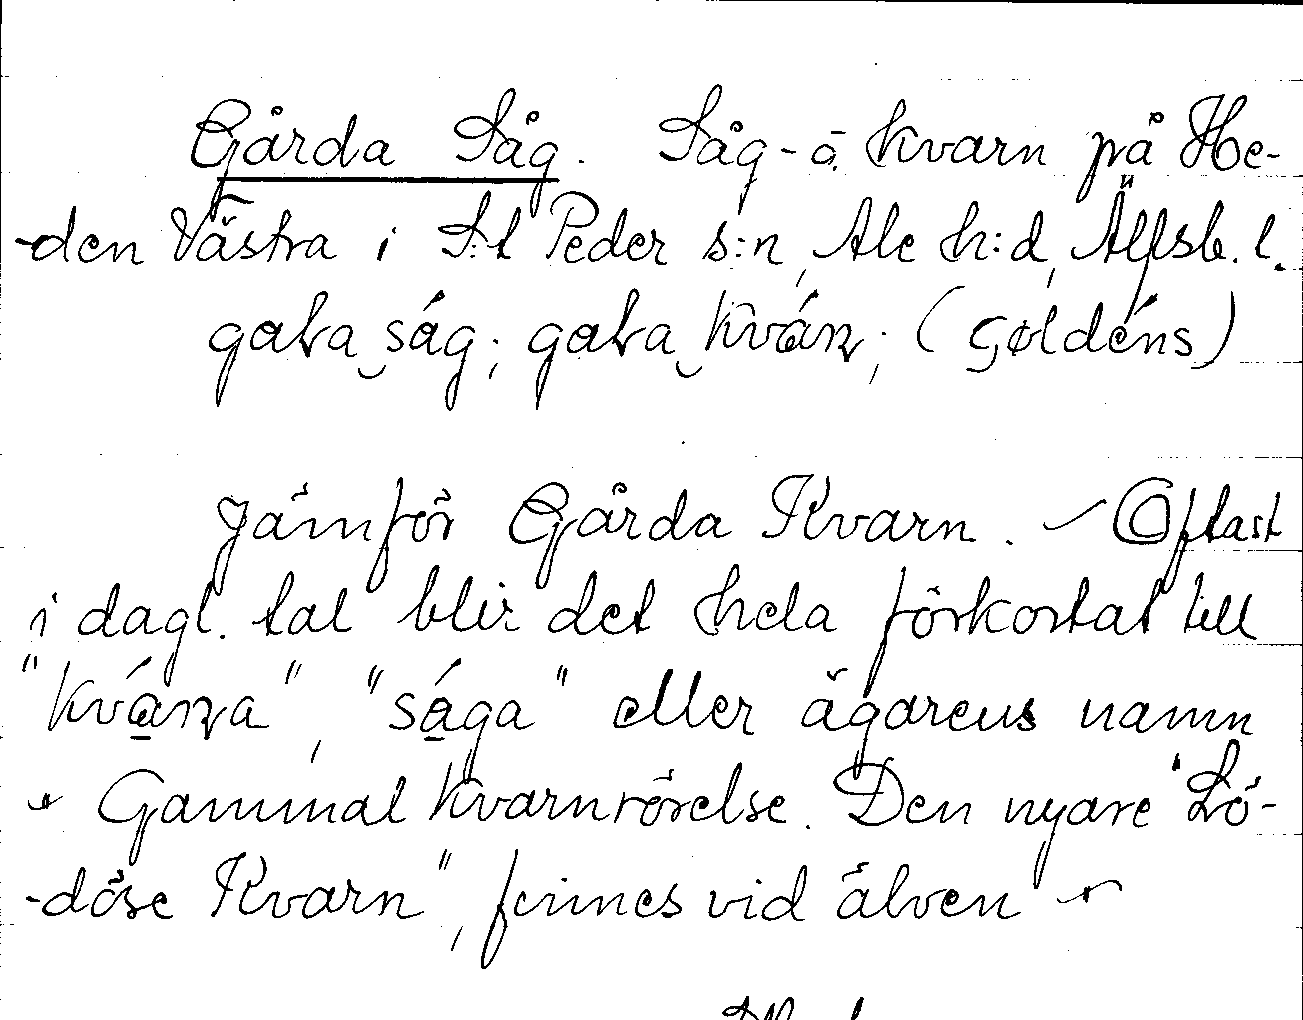 Gårda Såg. Såg- å. kvarn på He-
-den Västra i S:t Peder s:n, Ale h:d, Älfsb. l.
gaḷa såg; gaḷa kván; (Gøldéns)
Jämför Gårda Kvarn. - Oftast
i dagl. tal blir det hela förkortat till
"kvána", "sága" eller ägarens namn
- Gammal kvarnrörelse. Den nyare "Lö-
-döse Kvarn", finnes vid älven -